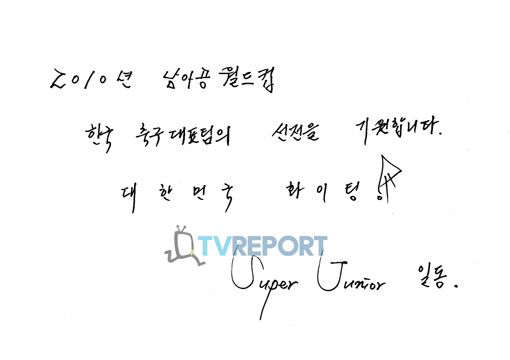 2010년 남아공 월드컵
한국 축구대표팀의 선전을 기원합니다.
대한민국 화이팅!
TVREPORT
Super Junior 일동.